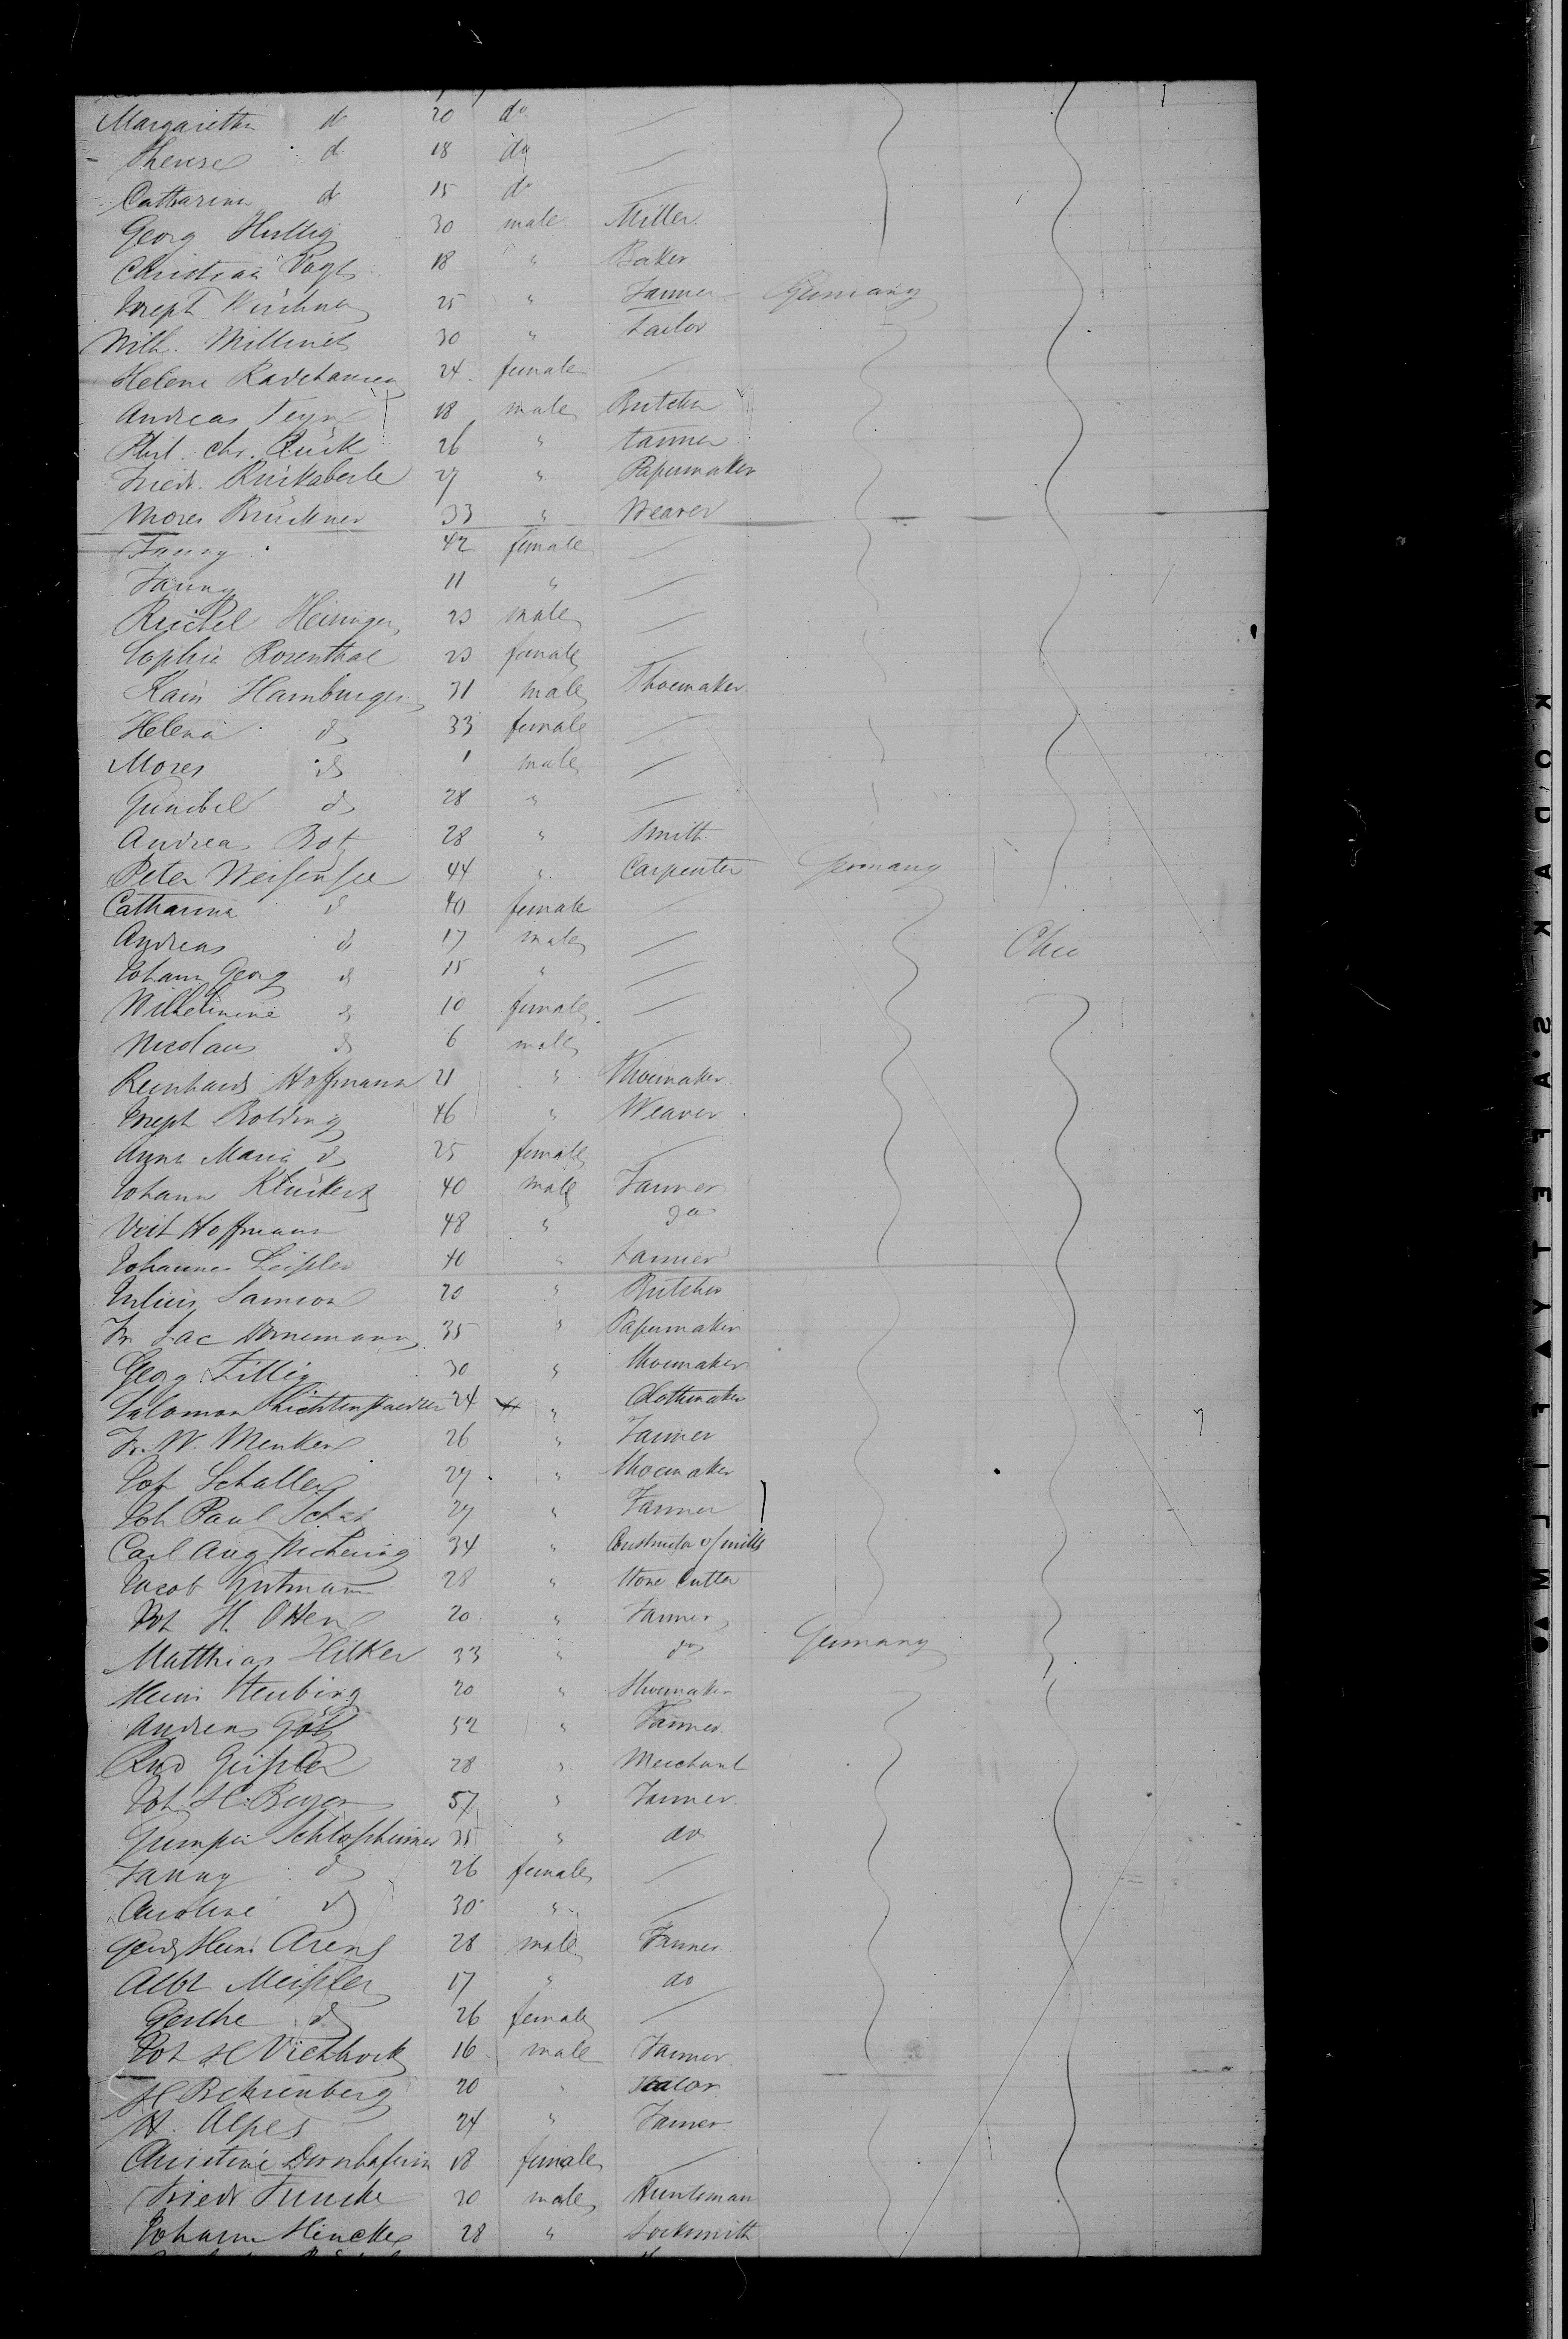 Margaretha do 20 do —
Therese do 18 do —
Catharina do 15 do —
Georg Huttig 30 male Miller
Christian Vogt 18 " Baker
Joseph Kirchner 25 " Farmer Germany
Wilh. 30 " tailor
Helene Radehausen 24 female —
Andreas Feyn 18 male Butcher
Phil. Chr. Rück 26 " tanner
Friedr. Rückaberle 27 " Papermaker
Moses Brückner 33 " Weaver
Fanny 42 female —
Fanny 11 " —
Reichel Heininger 23 male —
Sophie Rosenthal 23 female —
Kain Hamburger 31 male Shoemaker
Helena do 33 female —
Moses do 1 male —
do 28 " —
Andreas Botz 28 " Smith
Peter Weißensee 44 " Carpenter Germany
Catharina do 40 female —
Andreas do 17 male — Ohio
Johann Georg do 15 " —
Wilhelmine do 10 female —
Nicolaus do 6 male —
Reinhard Hoffmann 21 " Shoemaker
Joseph Bolding 46 " Weaver
Anna Maria do 25 female —
Johann Klückert 40 male Farmer
Veit Hoffmann 48 " do
Johannes Leißler 40 " tanner
Julius Samson 20 " Butcher
Fr. Jac Dornemann 35 " Papermaker
Georg Fillig 30 " Shoemaker
Salomon Lichtenstaedter 24 " Clothmaker
Fr. W. Menken 26 " Farmer
Joh Schaller 27 " Shoemaker
Joh Paul 27 " Farmer
Carl Aug 34 " Constructor of mills
Jacob Gutmann 28 " Stone Cutter
Joh H. Otten 20 " Farmer
Matthias Hilker 33 " do Germany
Heinr Steubing 20 " Shoemaker
Andreas Götz 52 " Farmer
Rud Geißler 28 " Merchant
Joh H. Beyer 57 " Farmer
Schloßheimer 35 " do
Fanny do 26 female —
Caroline do 30 " —
Gerd Heinr Arens 28 male Farmer
Albt Meißler 17 " do
Gesche do 26 female —
Joh H Viehbrock 16 male Farmer
H Behrenberg 20 " Tailor
H. Alpes 24 " Farmer
Christine 18 female —
Friedr Funcke 30 male Huntsman
Johann Hincke 28 " Locksmith
KODAK SAFETY ▲ FILM ▲●